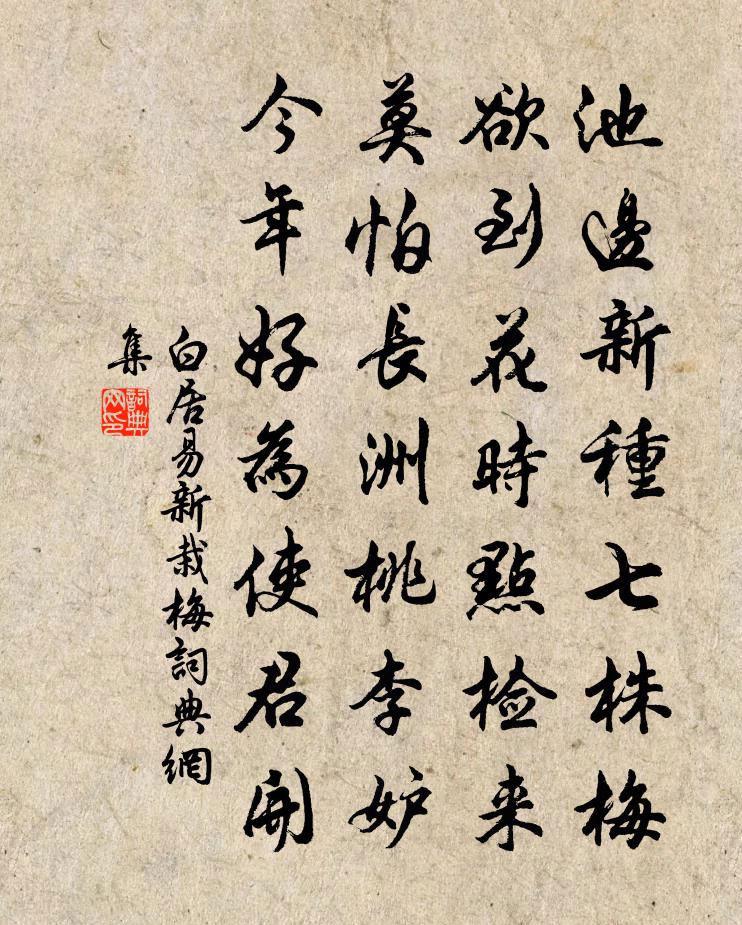 池邊新種七株梅
欲到花時點检来
莫怕長洲桃李妒
今年好為使君開
白居易新栽梅詞典網
集
詞典
网印